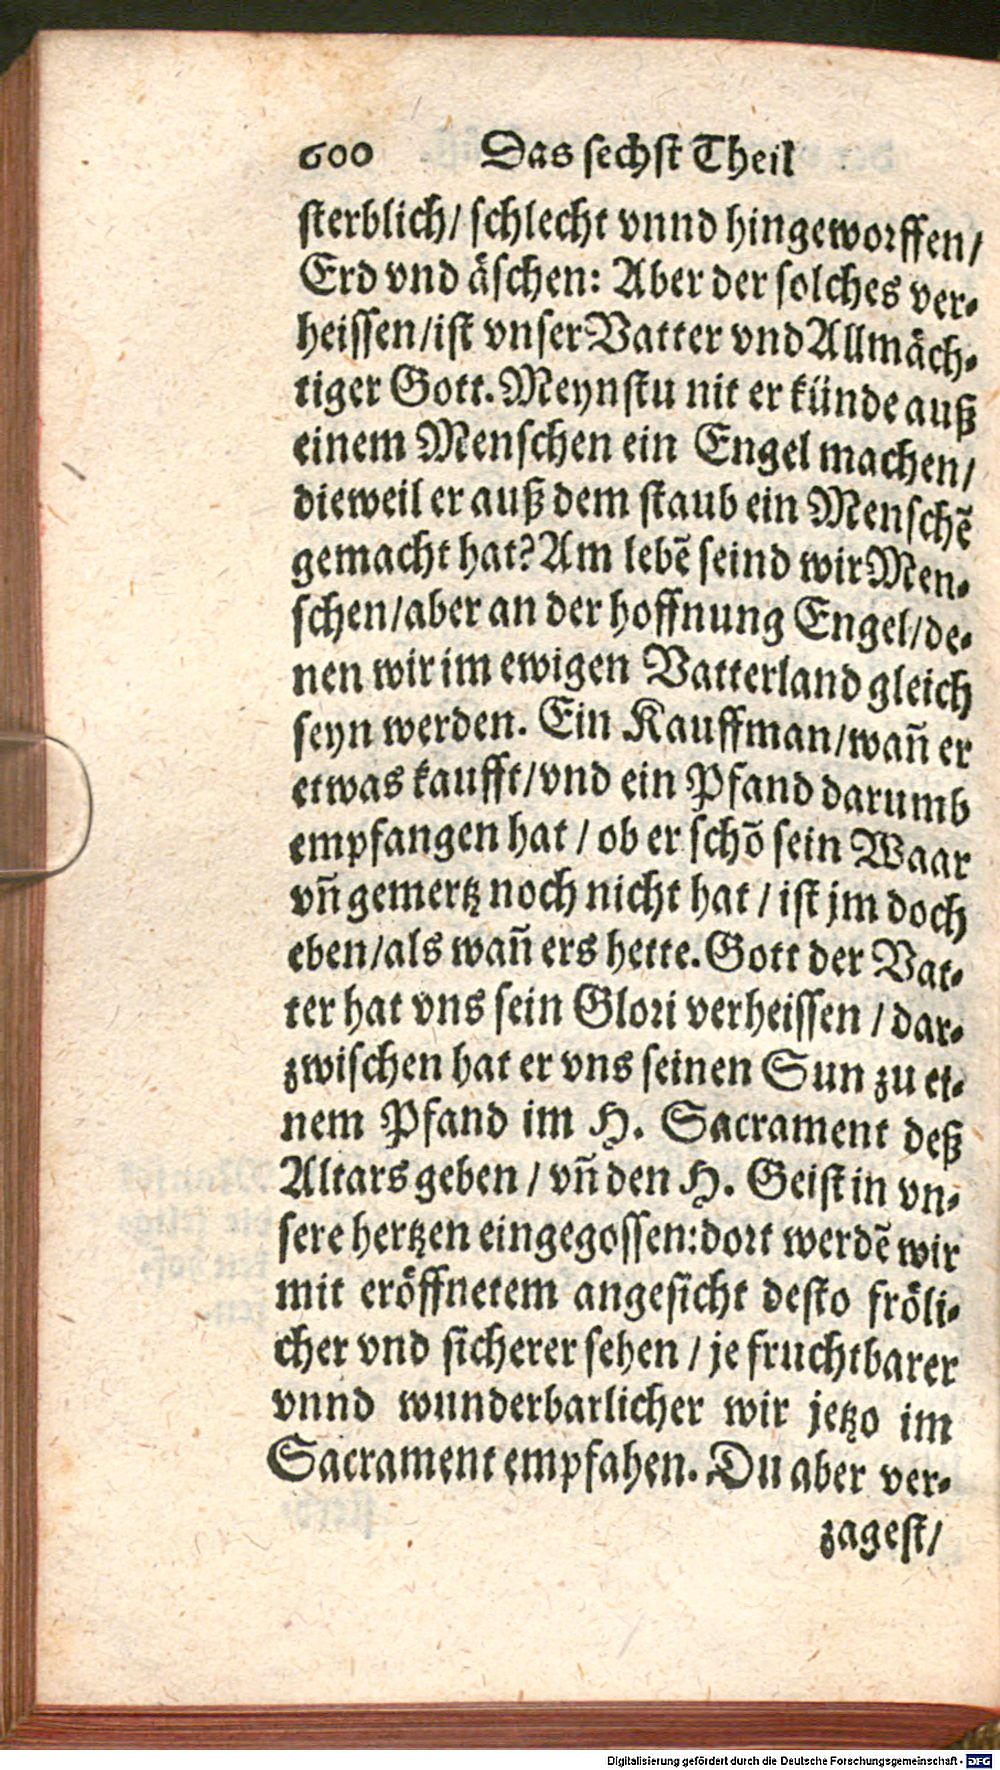 600 Das sechst Theil
sterblich/ schlecht vnnd hingeworffen/
Erd vnd äschen: Aber der solches ver-
heissen/ist vnser Vatter vnd Allmäch-
tiger Gott. Meynstu nit er künde auß
einem Menschen ein Engel machen/
dieweil er auß dem staub ein Menschẽ
gemacht hat? Am lebẽ seind wir Men-
schen/aber an der hoffnung Engel/de-
nen wir im ewigen Vatterland gleich
seyn werden. Ein Kauffman/wañ er
etwas kaufft/vnd ein Pfand darumb
empfangen hat / ob er schõ sein Waar
vñ gemertz noch nicht hat / ist jm doch
eben/als wañ ers hette. Gott der Vat-
ter hat vns sein Glori verheissen / dar-
zwischen hat er vns seinen Sun zu ei-
nem Pfand im H. Sacrament deß
Altars geben / vñ den H. Geist in vn-
sere hertzen eingegossen: dort werdẽ wir
mit eröffnetem angesicht desto fröli-
cher vnd sicherer sehen / je fruchtbarer
vnnd wunderbarlicher wir jetzo im
Sacrament empfahen. Du aber ver-
zagest/
Digitalisierung gefördert durch die Deutsche Forschungsgemeinschaft - DFG